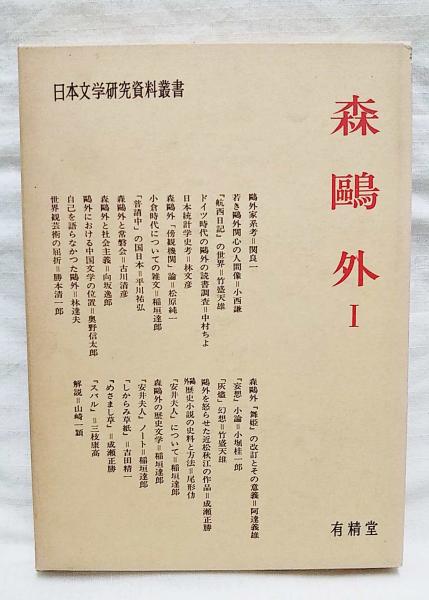 日本文学研究資料叢書
森鷗外 I
鷗外家系考＝関良一
若き鷗外関心の人間像＝小西謙
『航西日記』の世界＝竹盛天雄
ドイツ時代の鷗外の読書調査＝中村ちよ
日本統計学史考＝林文彦
森鷗外「傍観機関」論＝松原純一
小倉時代についての雑文＝稲垣達郎
「普請中」の国日本＝平川祐弘
森鷗外と常磐会＝古川清彦
森鷗外と社会主義＝向坂逸郎
鷗外における中国文学の位置＝奥野信太郎
自己を語らなかつた鷗外＝林達夫
世界観芸術の屈折＝勝本清一郎
森鷗外『舞姫』の改訂とその意義＝阿達義雄
『妄想』小論＝小堀桂一郎
『灰燼』幻想＝竹盛天雄
鷗外を怒らせた近松秋江の作品＝成瀬正勝
鷗外歴史小説の史料と方法＝尾形仂
『安井夫人』について＝稲垣達郎
『安井夫人』ノート＝稲垣達郎
森鷗外の歴史文学＝稲垣達郎
『しからみ草紙』＝吉田精一
『めさまし草』＝成瀬正勝
『スバル』＝三枝康高
解説＝山崎一穎
有精堂